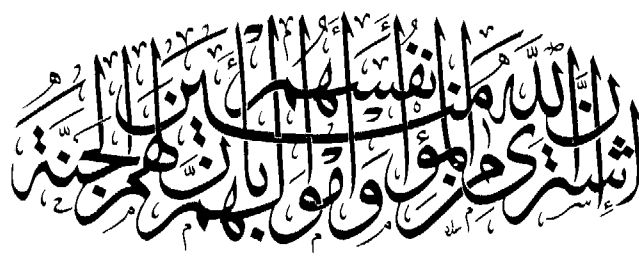 إن الله اشترى من المؤمنين أنفسهم وأموالهم بأن لهم الجنة